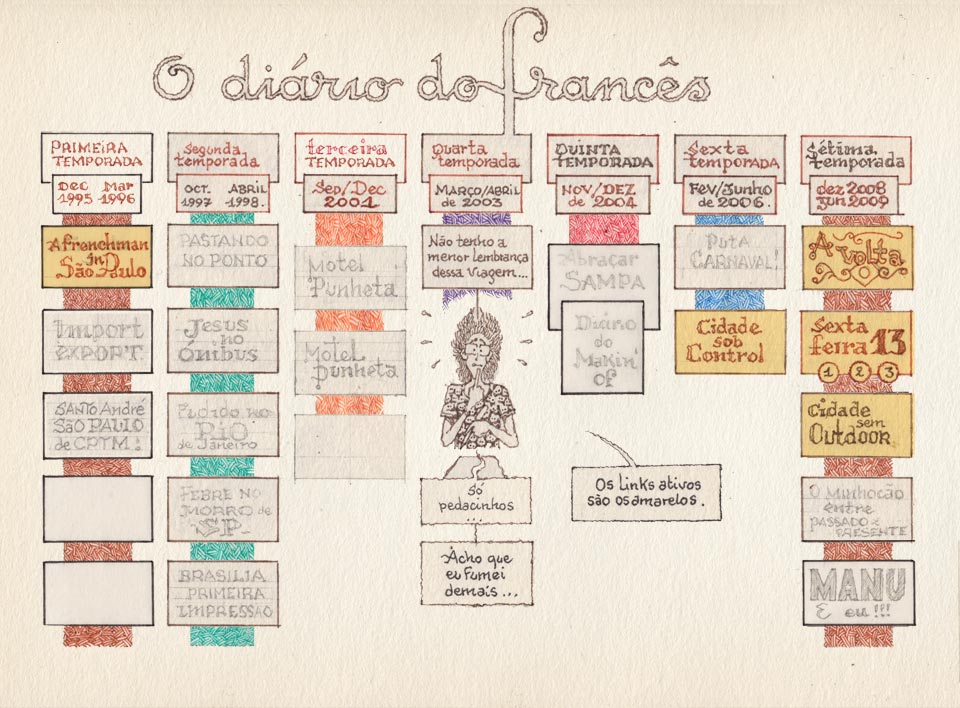 O diário do francês
PRIMEIRA
TEMPORADA
Dec Mar
1995 1996
A frenchman
in
São Paulo
Import
EXPORT
SANTO André
São PAULO
de CPTM!
Segunda
temporada
OCT. ABRIL
1997 1998.
PASTANDO
NO PONTO
Jesus
no
Ônibus
Fudido no
Rio
de Janeiro
FEBRE NO
MORRO de
SP
BRASILIA
PRIMEIRA
IMPRESSÃO
terceira
TEMPORADA
Sep/Dec
2001
Motel
Punheta
Motel
Punheta
Quarta
temporada
MARÇO/ABRIL
de 2003
Não tenho a
menor lembrança
dessa viagem...
Só
pedacinhos
...
Acho que
eu fumei
demais...
QUINTA
TEMPORADA
NOV/DEZ
de 2004
Abraçar
SAMPA
Diário
do
Makin'
of
Os links ativos
são os amarelos.
Sexta
temporada
Fev/Junho
de 2006.
Puta
CARNAVAL!
Cidade
sob
Control
Sétima
temporada
dez 2008
jun 2009
A volta
Sexta
feira 13
1 2 3
Cidade
sem
Outdoor
O Minhocão
entre
PASSADO e
PRESENTE
MANU
E eu!!!